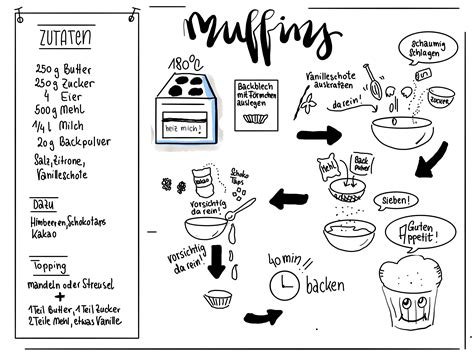 Muffins
ZUTATEN
250 g Butter
250 g Zucker
4 Eier
500 g Mehl
1/4 l Milch
20 g Backpulver
Salz, Zitrone,
Vanilleschote
Dazu
Himbeeren, Schokotaps
Kakao
Topping
mandeln oder Streusel
+
1 Teil Butter, 1 Teil Zucker
2 Teile Mehl, etwas Vanille
180°C
heiz mich!
Backblech
mit Förmchen
auslegen
Vanilleschote
auskratzen
da rein!
schaumig
schlagen
Zucker
Mehl
Back
Pulver
Sieben!
Kakao
Schoko
Taps
Vorsichtig
da rein!
vorsichtig
da rein!
40 min!!
backen
Guten
Appetit!